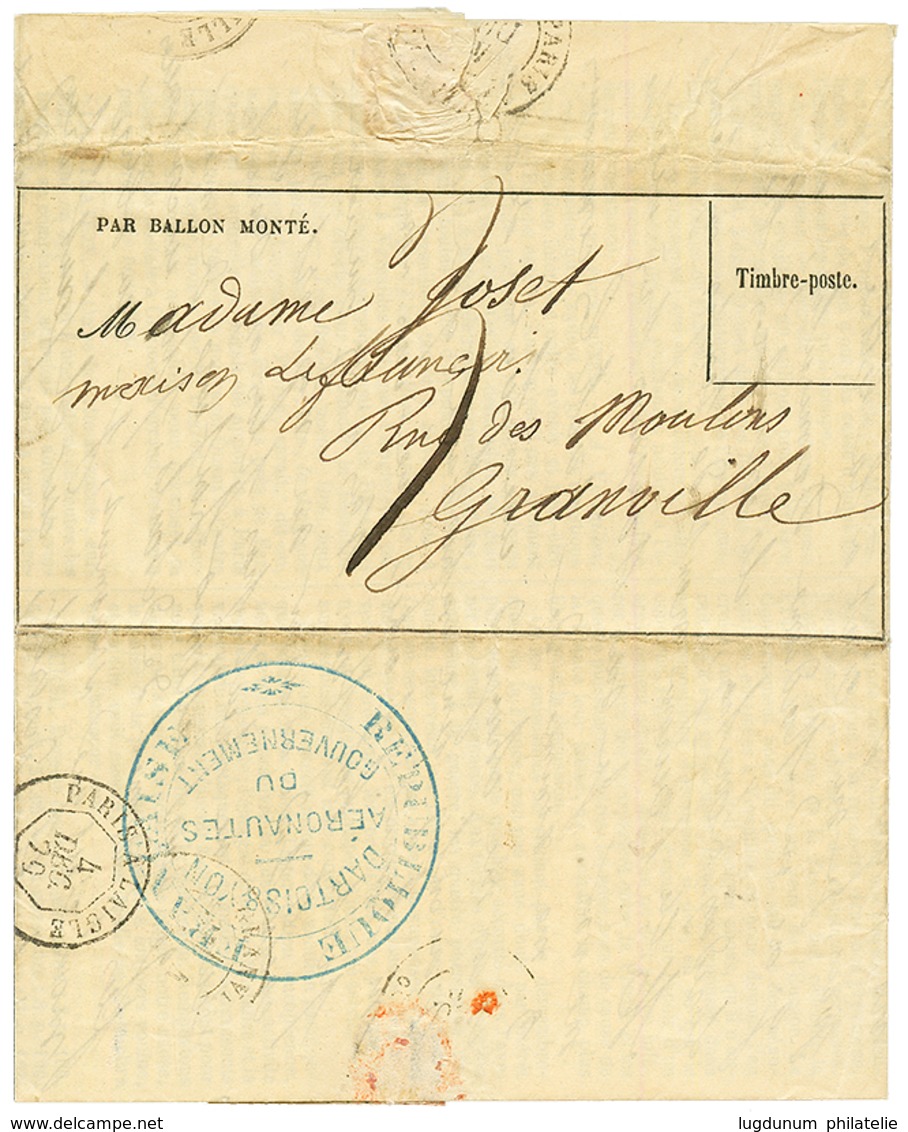 PARIS
PAR BALLON MONTÉ.
Timbre-poste.
Madame Joset
maison
Rue des Moulins
Granville
REPUBLIQUE FRANÇAISE
DARTOIS & YON
AÉRONAUTES
DU
GOUVERNEMENT
PARIS A LAIGLE
4
DEC
70
delcampe.net
lugdunum philatelie